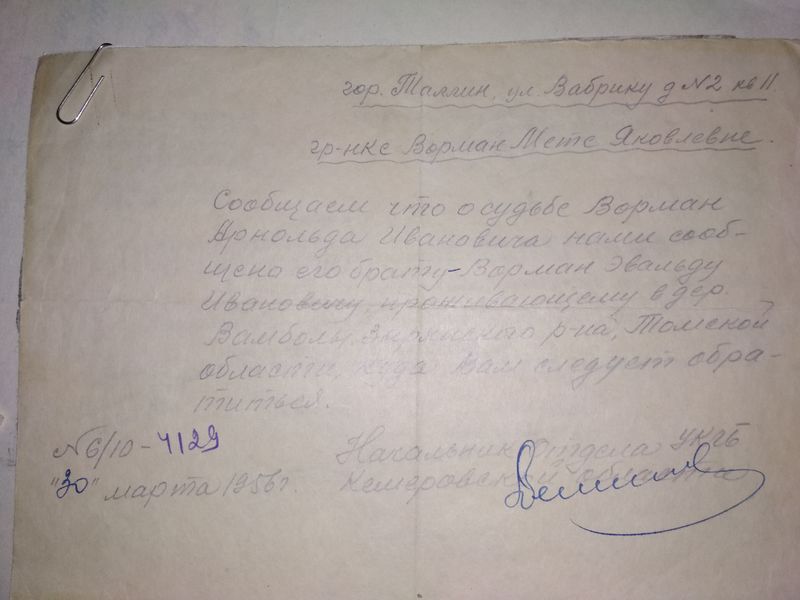 гор. Таллин, ул. Вабрику д N2 кв 11
гр-нке Ворман Мете Яковлевне.
Сообщаем что о судьбе Ворман
Арнольда Ивановича нами сооб-
щено его брату-Ворман Эвальду
Ивановичу, проживающему в дер.
Вамболы, р-на, Томской
области, куда Вам следует обра-
титься.
№ 6/10-4129
Начальник отдела УКГБ
"30" марта 1956 г.
Кемеровской области